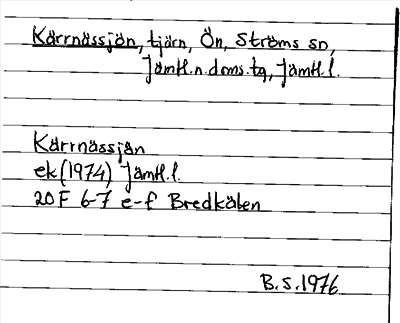 Kärrnässjön, tjärn, Ön, Ströms sn,
Jämtl.n.doms.tg, Jämtl.l.
Kärrnässjön
ek(1974) Jämtl.l.
20F 6-7 e-f Bredkälen
B.S.1976